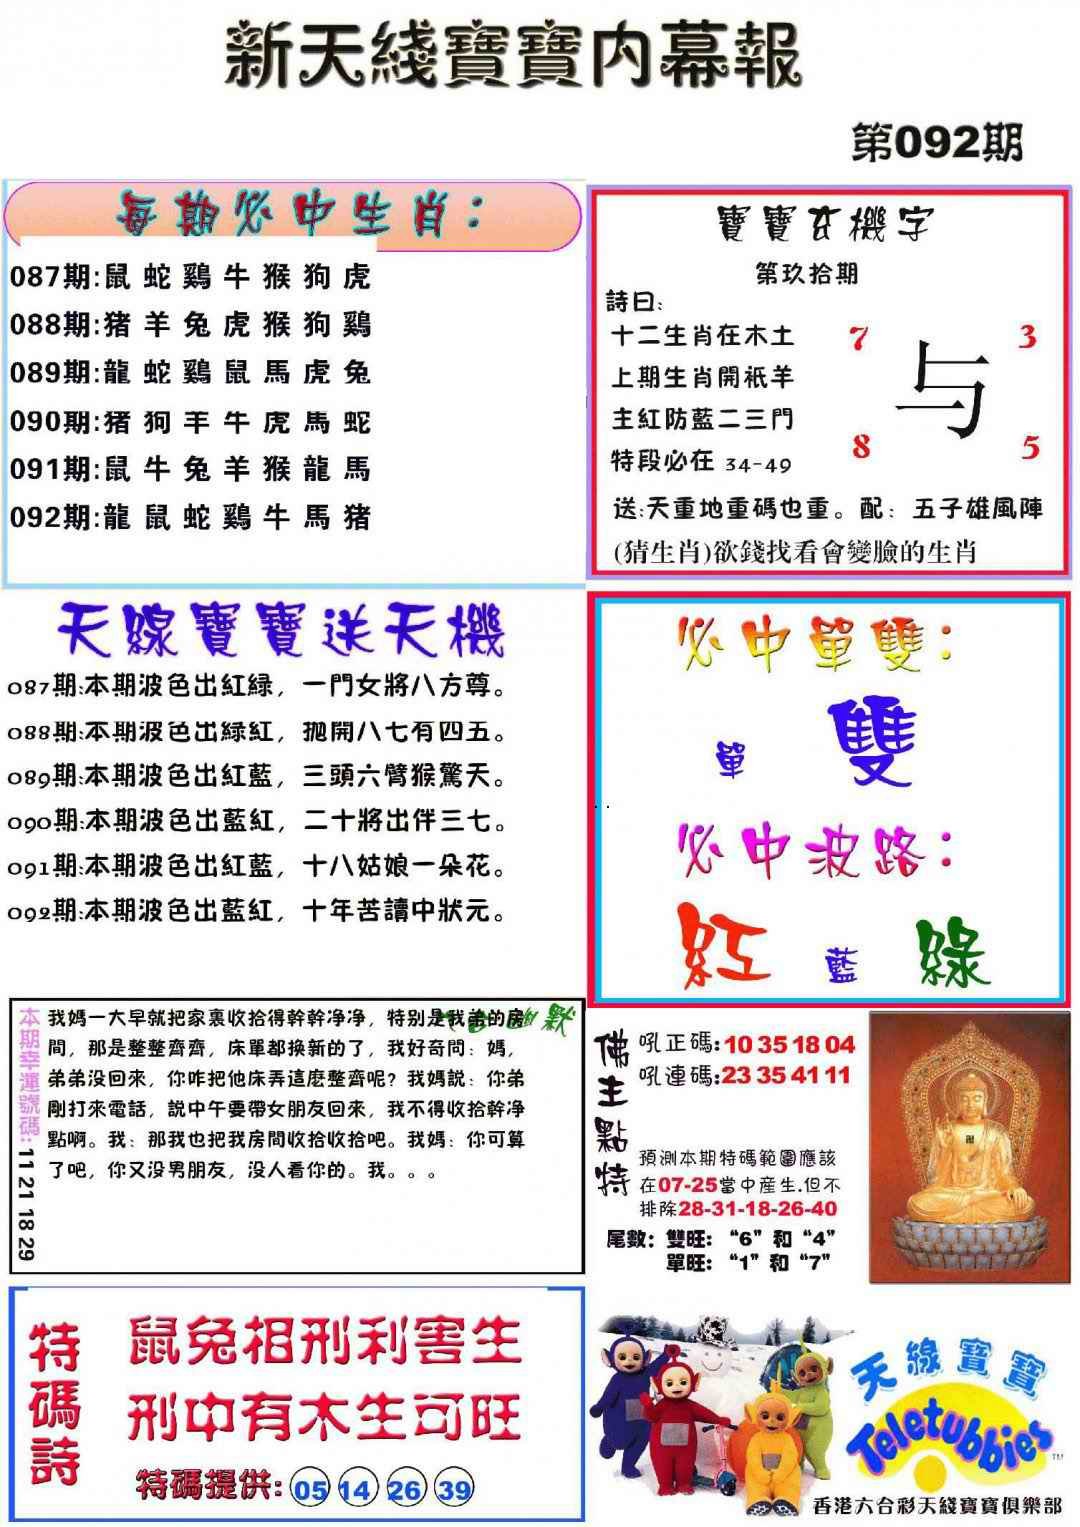 新天綫寶寶内幕報
第092期
每期必中生肖：
087期:鼠 蛇 鷄 牛 猴 狗 虎
088期:猪 羊 兔 虎 猴 狗 鷄
089期:龍 蛇 鷄 鼠 馬 虎 兔
090期:猪 狗 羊 牛 虎 馬 蛇
091期:鼠 牛 兔 羊 猴 龍 馬
092期:龍 鼠 蛇 鷄 牛 馬 猪
寶寶玄機字
第玖拾期
詩曰:
十二生肖在木土
上期生肖開祇羊
主紅防藍二三門
特段必在 34-49
7 3
与
8 5
送:天重地重碼也重。配：五子雄風陣
(猜生肖)欲錢找看會變臉的生肖
天線寶寶送天機
087期:本期波色出紅緑，一門女將八方尊。
088期:本期波色出緑紅，抛開八七有四五。
089期:本期波色出紅藍，三頭六臂猴驚天。
090期:本期波色出藍紅，二十將出伴三七。
091期:本期波色出紅藍，十八姑娘一朵花。
092期:本期波色出藍紅，十年苦讀中狀元。
必中單雙：
單 雙
必中波路：
紅 藍 綠
本期幸運號碼: 11 21 18 29
幽默
我媽一大早就把家裏收拾得幹幹净净，特别是我弟的房
間，那是整整齊齊，床單都换新的了，我好奇問：媽，
弟弟没回來，你咋把他床弄這麽整齊呢？我媽説：你弟
剛打來電話，説中午要帶女朋友回來，我不得收拾幹净
點啊。我：那我也把我房間收拾收拾吧。我媽：你可算
了吧，你又没男朋友，没人看你的。我。。。
佛主點特
吼正碼:10 35 18 04
吼連碼:23 35 41 11
預測本期特碼範圍應該
在07-25當中産生.但不
排除28-31-18-26-40
尾數：雙旺：“6”和“4”
單旺：“1”和“7”
特碼詩
鼠兔相刑利害生
刑中有木生可旺
特碼提供: 05 14 26 39
天線寶寶
Teletubbies
TM
香港六合彩天綫寶寶俱樂部